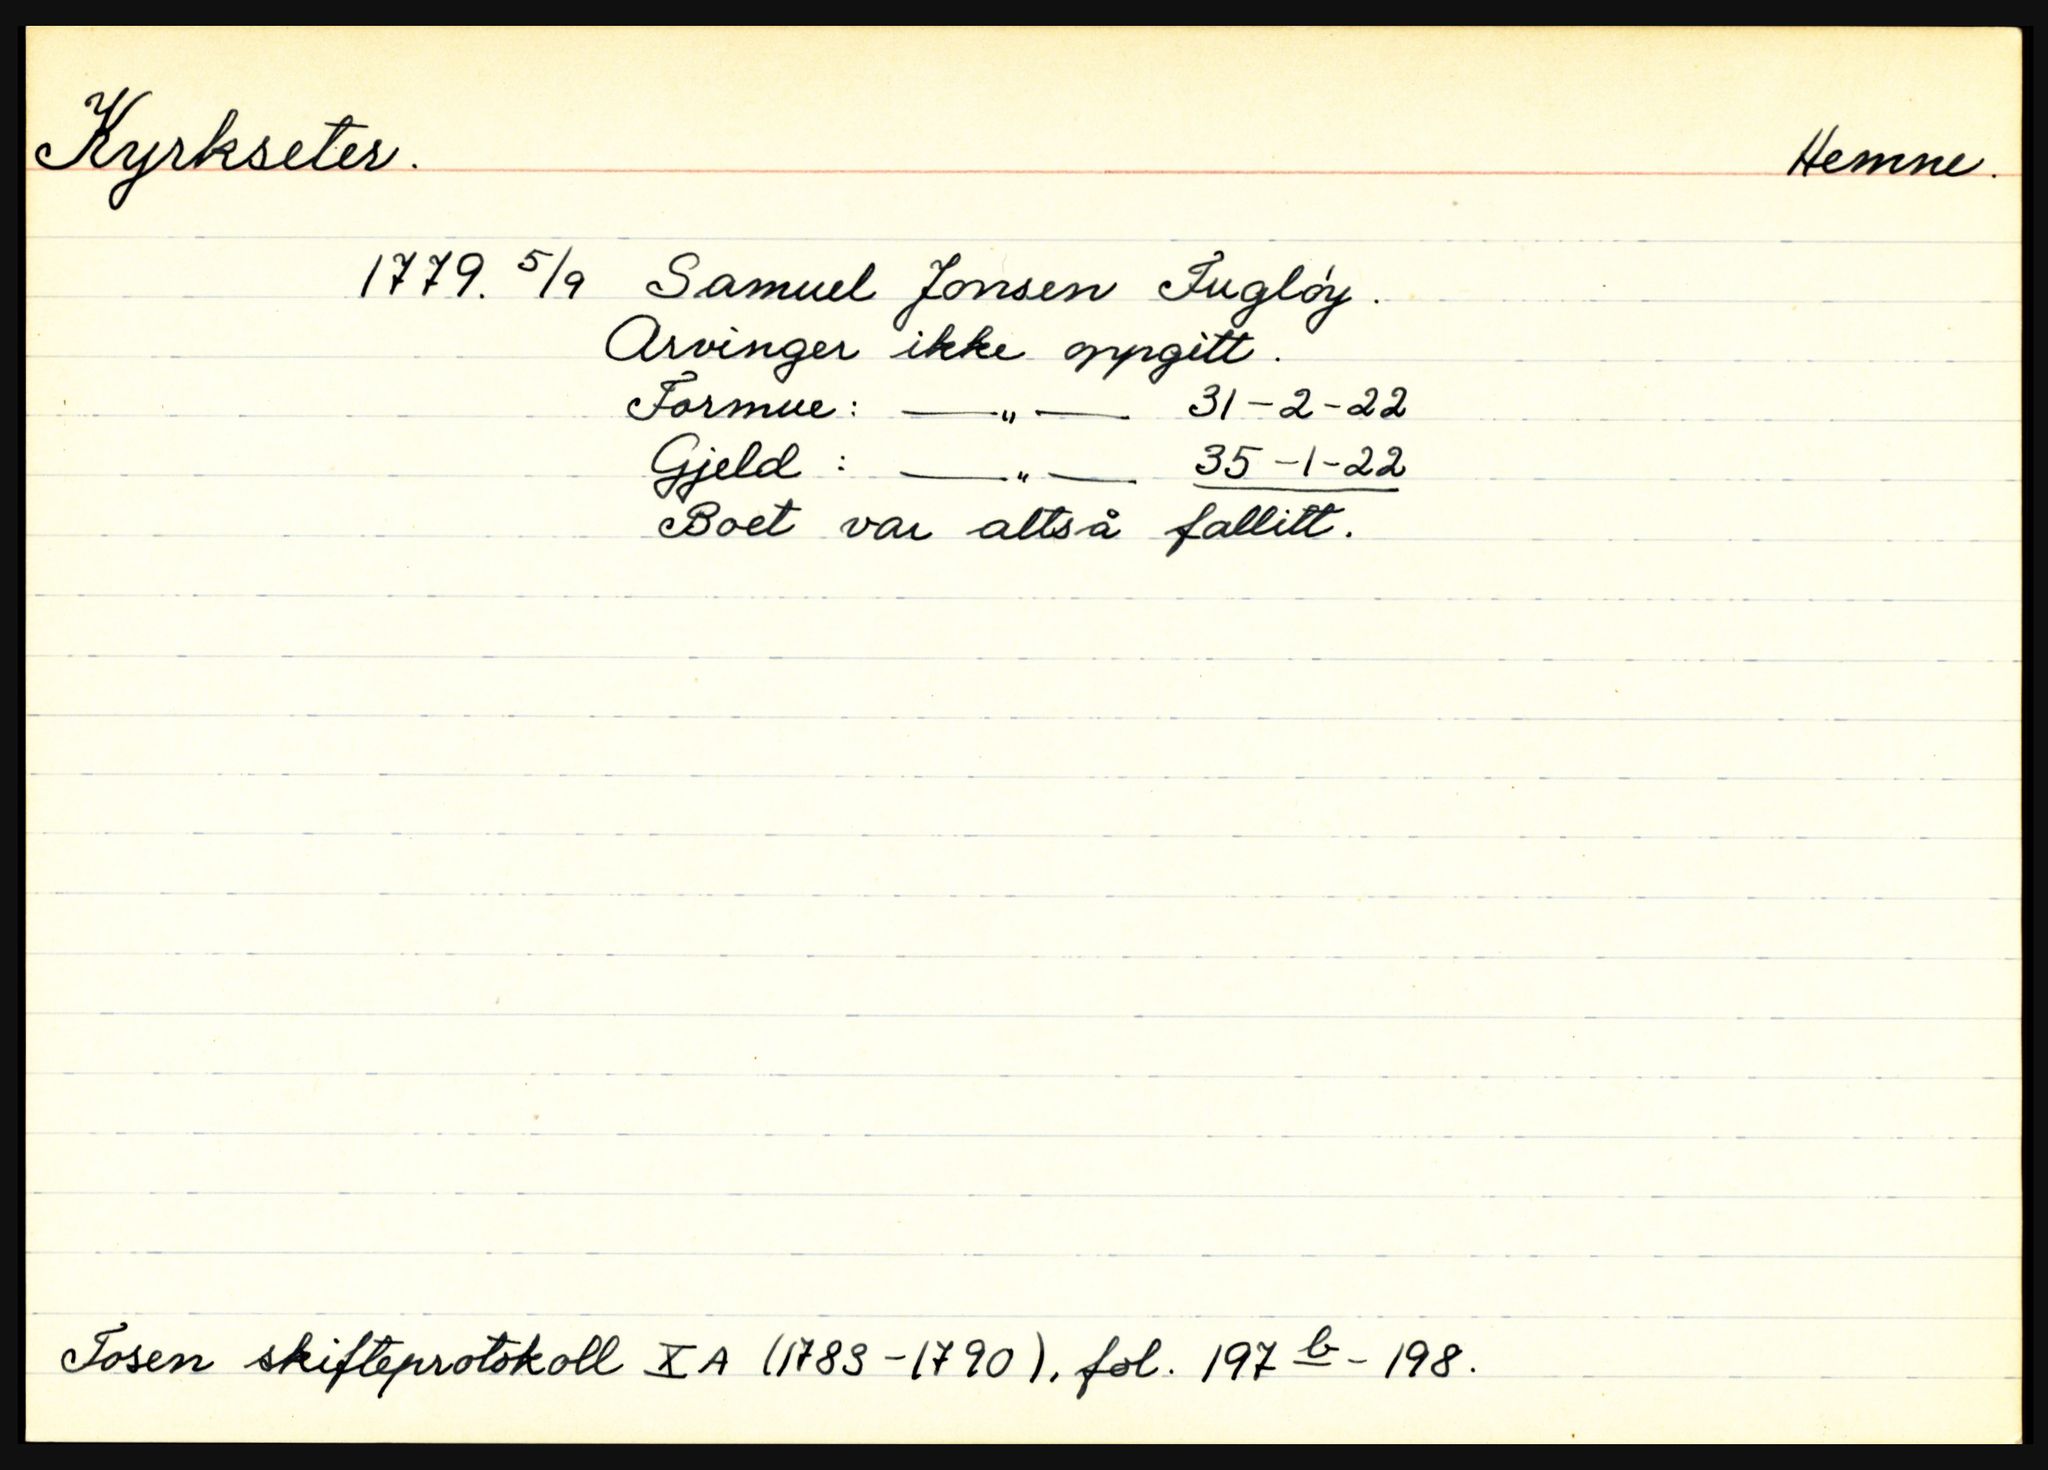 Kyrkseter. Hemne.
1779. 5/9 Samuel Jonsen Fugløy.
Arvinger ikke oppgitt.
Formue: —"— 31-2-22
Gjeld : —"— 35-1-22
Boet var altså fallitt.
Fosen skifteprotokoll X A (1783-1790), fol. 197 b - 198.